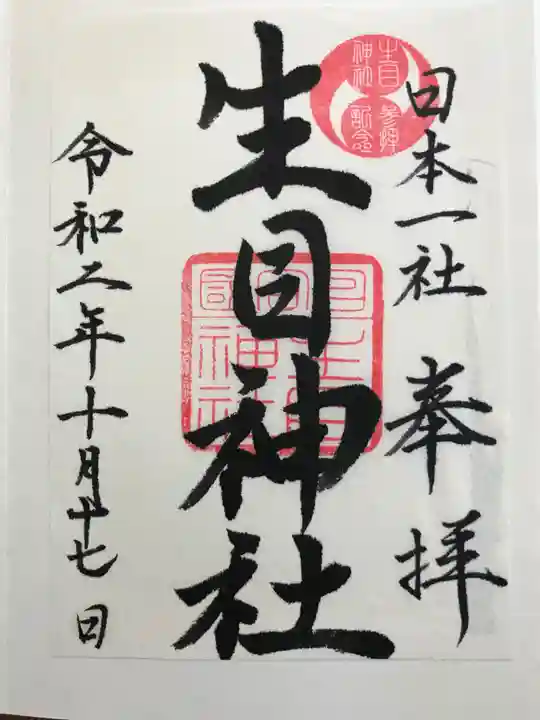 日本一社 奉拝
生目 神社 参拝 記念
生目神社
令和二年十月十七日